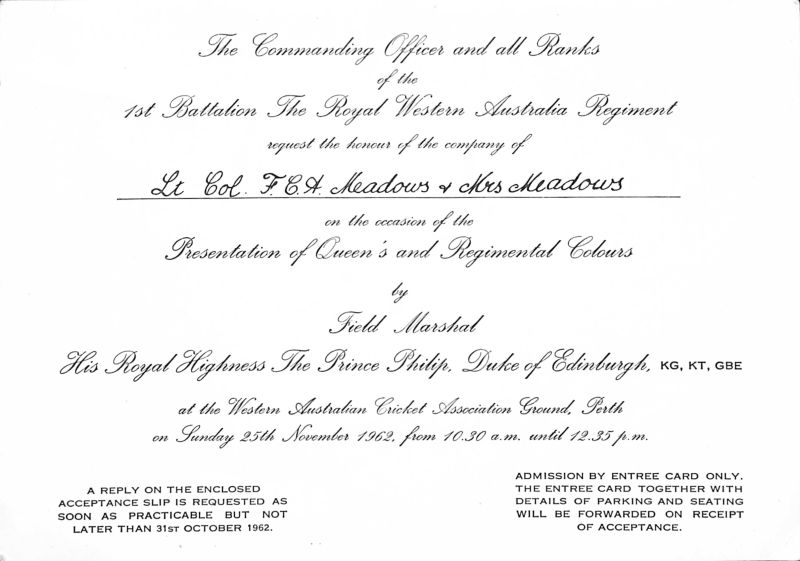 The Commanding Officer and all Ranks
of the
1st Battalion The Royal Western Australia Regiment
request the honour of the company of
Lt Col. F.C.A. Meadows & Mrs Meadows
on the occasion of the
Presentation of Queen's and Regimental Colours
by
Field Marshal
His Royal Highness The Prince Philip, Duke of Edinburgh, KG, KT, GBE
at the Western Australian Cricket Association Ground, Perth
on Sunday 25th November 1962, from 10.30 a.m. until 12.35 p.m.
A REPLY ON THE ENCLOSED
ACCEPTANCE SLIP IS REQUESTED AS
SOON AS PRACTICABLE BUT NOT
LATER THAN 31ST OCTOBER 1962.
ADMISSION BY ENTREE CARD ONLY.
THE ENTREE CARD TOGETHER WITH
DETAILS OF PARKING AND SEATING
WILL BE FORWARDED ON RECEIPT
OF ACCEPTANCE.